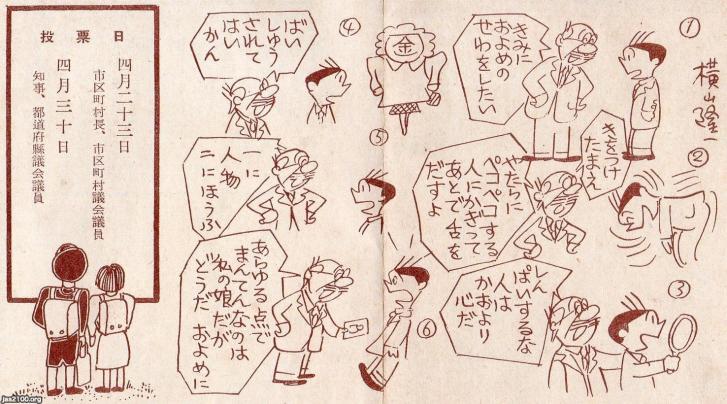 横山隆一
①
きみに
およめの
せわをしたい
②
きをつけ
たまえ
やたらに
ペコペコする
人にかぎって
あとで舌を
だすよ
③
しん
ぱいするな
人は
かおより
心だ
④
金
ばい
しゅう
されて
はい
かん
⑤
一に
人物
二にほうふ
⑥
あらゆる点で
まんてんなのは
私の娘だが
どうだ およめに
投票日
四月二十三日
市区町村長、市区町村議会議員
四月三十日
知事、都道府縣議会議員
jaa2100.org